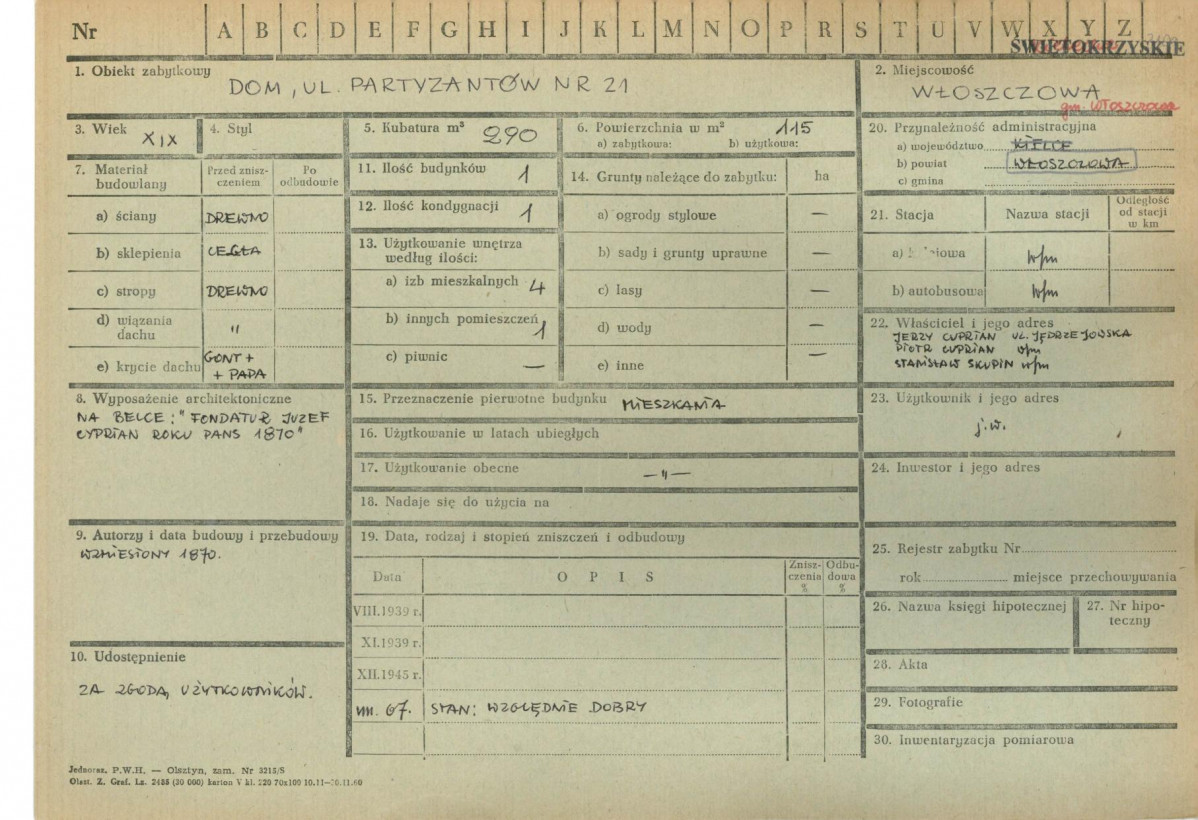 Nr A B C D E F G H I J K L M N O P R S T U V W X Y Z
ŚWIĘTOKRZYSKIE
1. Obiekt zabytkowy
DOM, UL. PARTYZANTÓW NR 21
2. Miejscowość
WŁOSZCZOWA
gm. Włoszczowa
3. Wiek XIX
4. Styl
5. Kubatura m³ 290
6. Powierzchnia w m² 115
a) zabytkowa: b) użytkowa:
7. Materiał budowlany
Przed zniszczeniem
Po odbudowie
a) ściany DREWNO
b) sklepienia CEGŁA
c) stropy DREWNO
d) wiązania dachu "
e) krycie dachu GONT +
+ PAPA
8. Wyposażenie architektoniczne
NA BELCE: "FONDATUR JUZEF
CYPRIAN ROKU PANS 1870"
9. Autorzy i data budowy i przebudowy
WZNIESIONY 1870.
10. Udostępnienie
ZA ZGODĄ UŻYTKOWNIKÓW.
11. Ilość budynków 1
12. Ilość kondygnacji 1
13. Użytkowanie wnętrza
według ilości:
a) izb mieszkalnych 4
b) innych pomieszczeń 1
c) piwnic —
14. Grunty należące do zabytku: ha
a) ogrody stylowe —
b) sady i grunty uprawne —
c) lasy —
d) wody —
e) inne —
15. Przeznaczenie pierwotne budynku MIESZKANIA
16. Użytkowanie w latach ubiegłych
17. Użytkowanie obecne —"—
18. Nadaje się do użycia na
19. Data, rodzaj i stopień zniszczeń i odbudowy
Data
OPIS
Zniszczenia %
Odbudowa %
VIII.1939 r.
XI.1939 r.
XII.1945 r.
67. STAN: WZGLĘDNIE DOBRY
20. Przynależność administracyjna
a) województwo KIELCE
b) powiat WŁOSZCZOWA
c) gmina
21. Stacja
Nazwa stacji
Odległość od stacji w km
a) kolejowa w/m
b) autobusowa w/m
22. Właściciel i jego adres
JERZY CUPRIAN UL. JĘDRZEJOWSKA
PIOTR CUPRIAN w/m
STANISŁAW SKUPIN w/m
23. Użytkownik i jego adres
j.w.
24. Inwestor i jego adres
25. Rejestr zabytku Nr
rok miejsce przechowywania
26. Nazwa księgi hipotecznej
27. Nr hipoteczny
28. Akta
29. Fotografie
30. Inwentaryzacja pomiarowa
Jednoraz. P.W.H. — Olsztyn, zam. Nr 3215/S
Olszt. Z. Graf. Lz. 2435 (30 000) karton V kl. 220 70x100 10.11—20.11.60